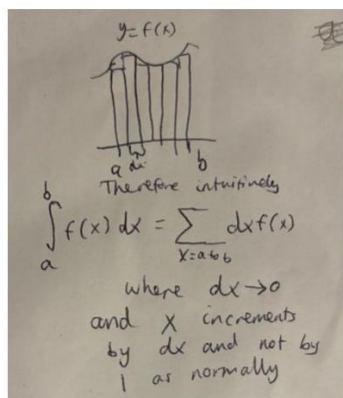 y=f(x)
a dx b
Therefore intuitively
∫_a^b f(x) dx = ∑_{x=a to b} dx f(x)
where dx→0
and x increments
by dx and not by
1 as normally